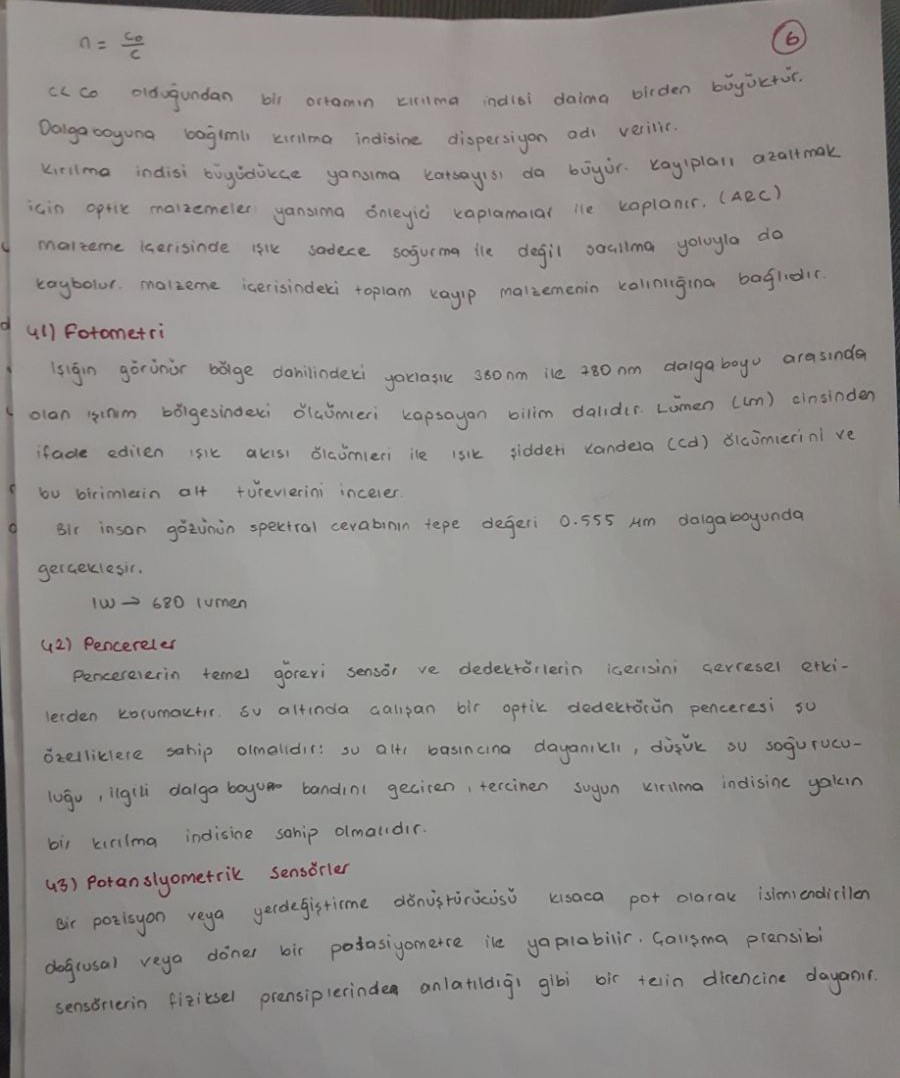 n = c₀/c
6
c<c₀ olduğundan bir ortamın kırılma indisi daima birden büyüktür.
Dalgaboyuna bağımlı kırılma indisine dispersiyon adı verilir.
Kırılma indisi büyüdükçe yansıma katsayısı da büyür. Kayıpları azaltmak
için optik malzemeler yansıma önleyici kaplamalar ile kaplanır. (ARC)
malzeme içerisinde ışık sadece soğurma ile değil saçılma yoluyla da
kaybolur. malzeme içerisindeki toplam kayıp malzemenin kalınlığına bağlıdır.
41) Fotometri
Işığın görünür bölge dahilindeki yaklaşık 380 nm ile 780 nm dalgaboyu arasında
olan ışınım bölgesindeki ölçümleri kapsayan bilim dalıdır. Lümen (lm) cinsinden
ifade edilen ışık akısı ölçümleri ile ışık şiddeti kandela (cd) ölçümlerini ve
bu birimlerin alt türevlerini inceler.
Bir insan gözünün spektral cevabının tepe değeri 0.555 µm dalgaboyunda
gerçekleşir.
1W → 680 lumen
42) Pencereler
Pencerelerin temel görevi sensör ve dedektörlerin içerisini çevresel etki-
lerden korumaktır. Su altında çalışan bir optik dedektörün penceresi şu
özelliklere sahip olmalıdır: su altı basıncına dayanıklı, düşük su soğurucu-
luğu, ilgili dalgaboyu bandını geçiren, tercinen suyun kırılma indisine yakın
bir kırılma indisine sahip olmalıdır.
43) Potansiyometrik Sensörler
Bir pozisyon veya yerdeğiştirme dönüştürücüsü kısaca pot olarak isimlendirilen
doğrusal veya döner bir potasiyometre ile yapılabilir. Çalışma prensibi
sensörlerin fiziksel prensiplerinden anlatıldığı gibi bir telin direncine dayanır.